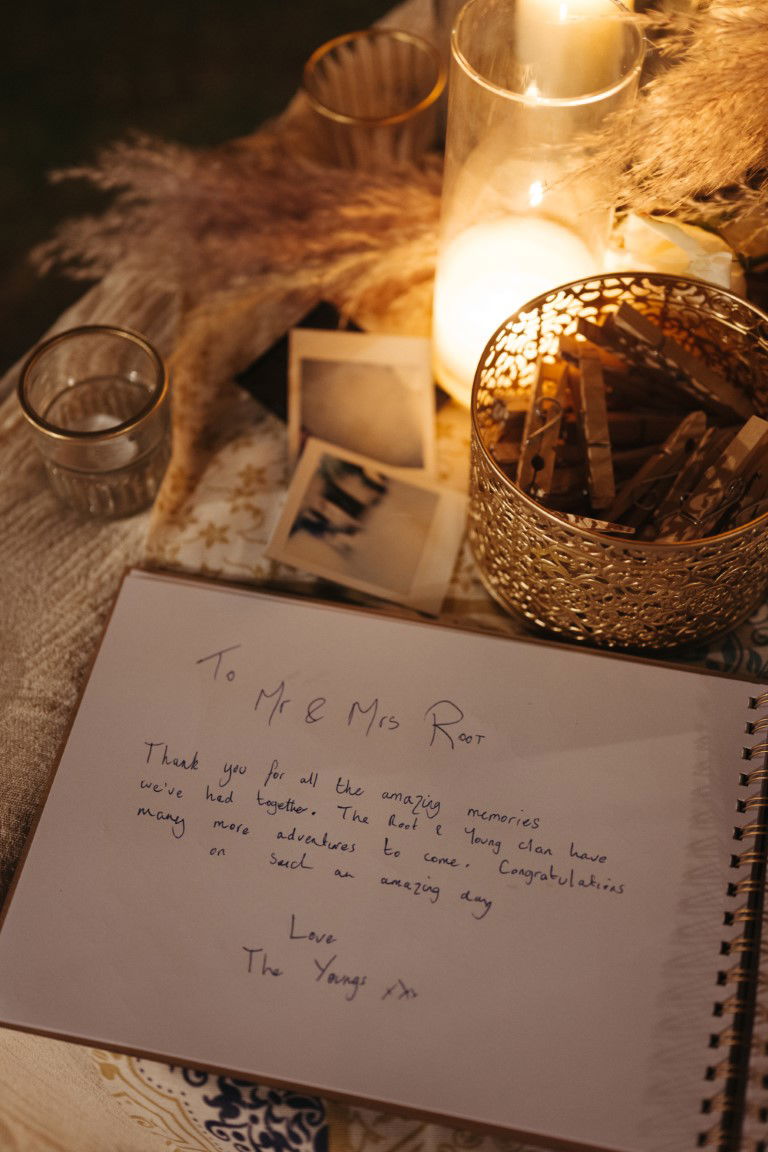 To
Mr & Mrs Root
Thank you for all the amazing memories
we've had together. The Root & Young clan have
many more adventures to come. Congratulations
on such an amazing day
Love
The Youngs xxx